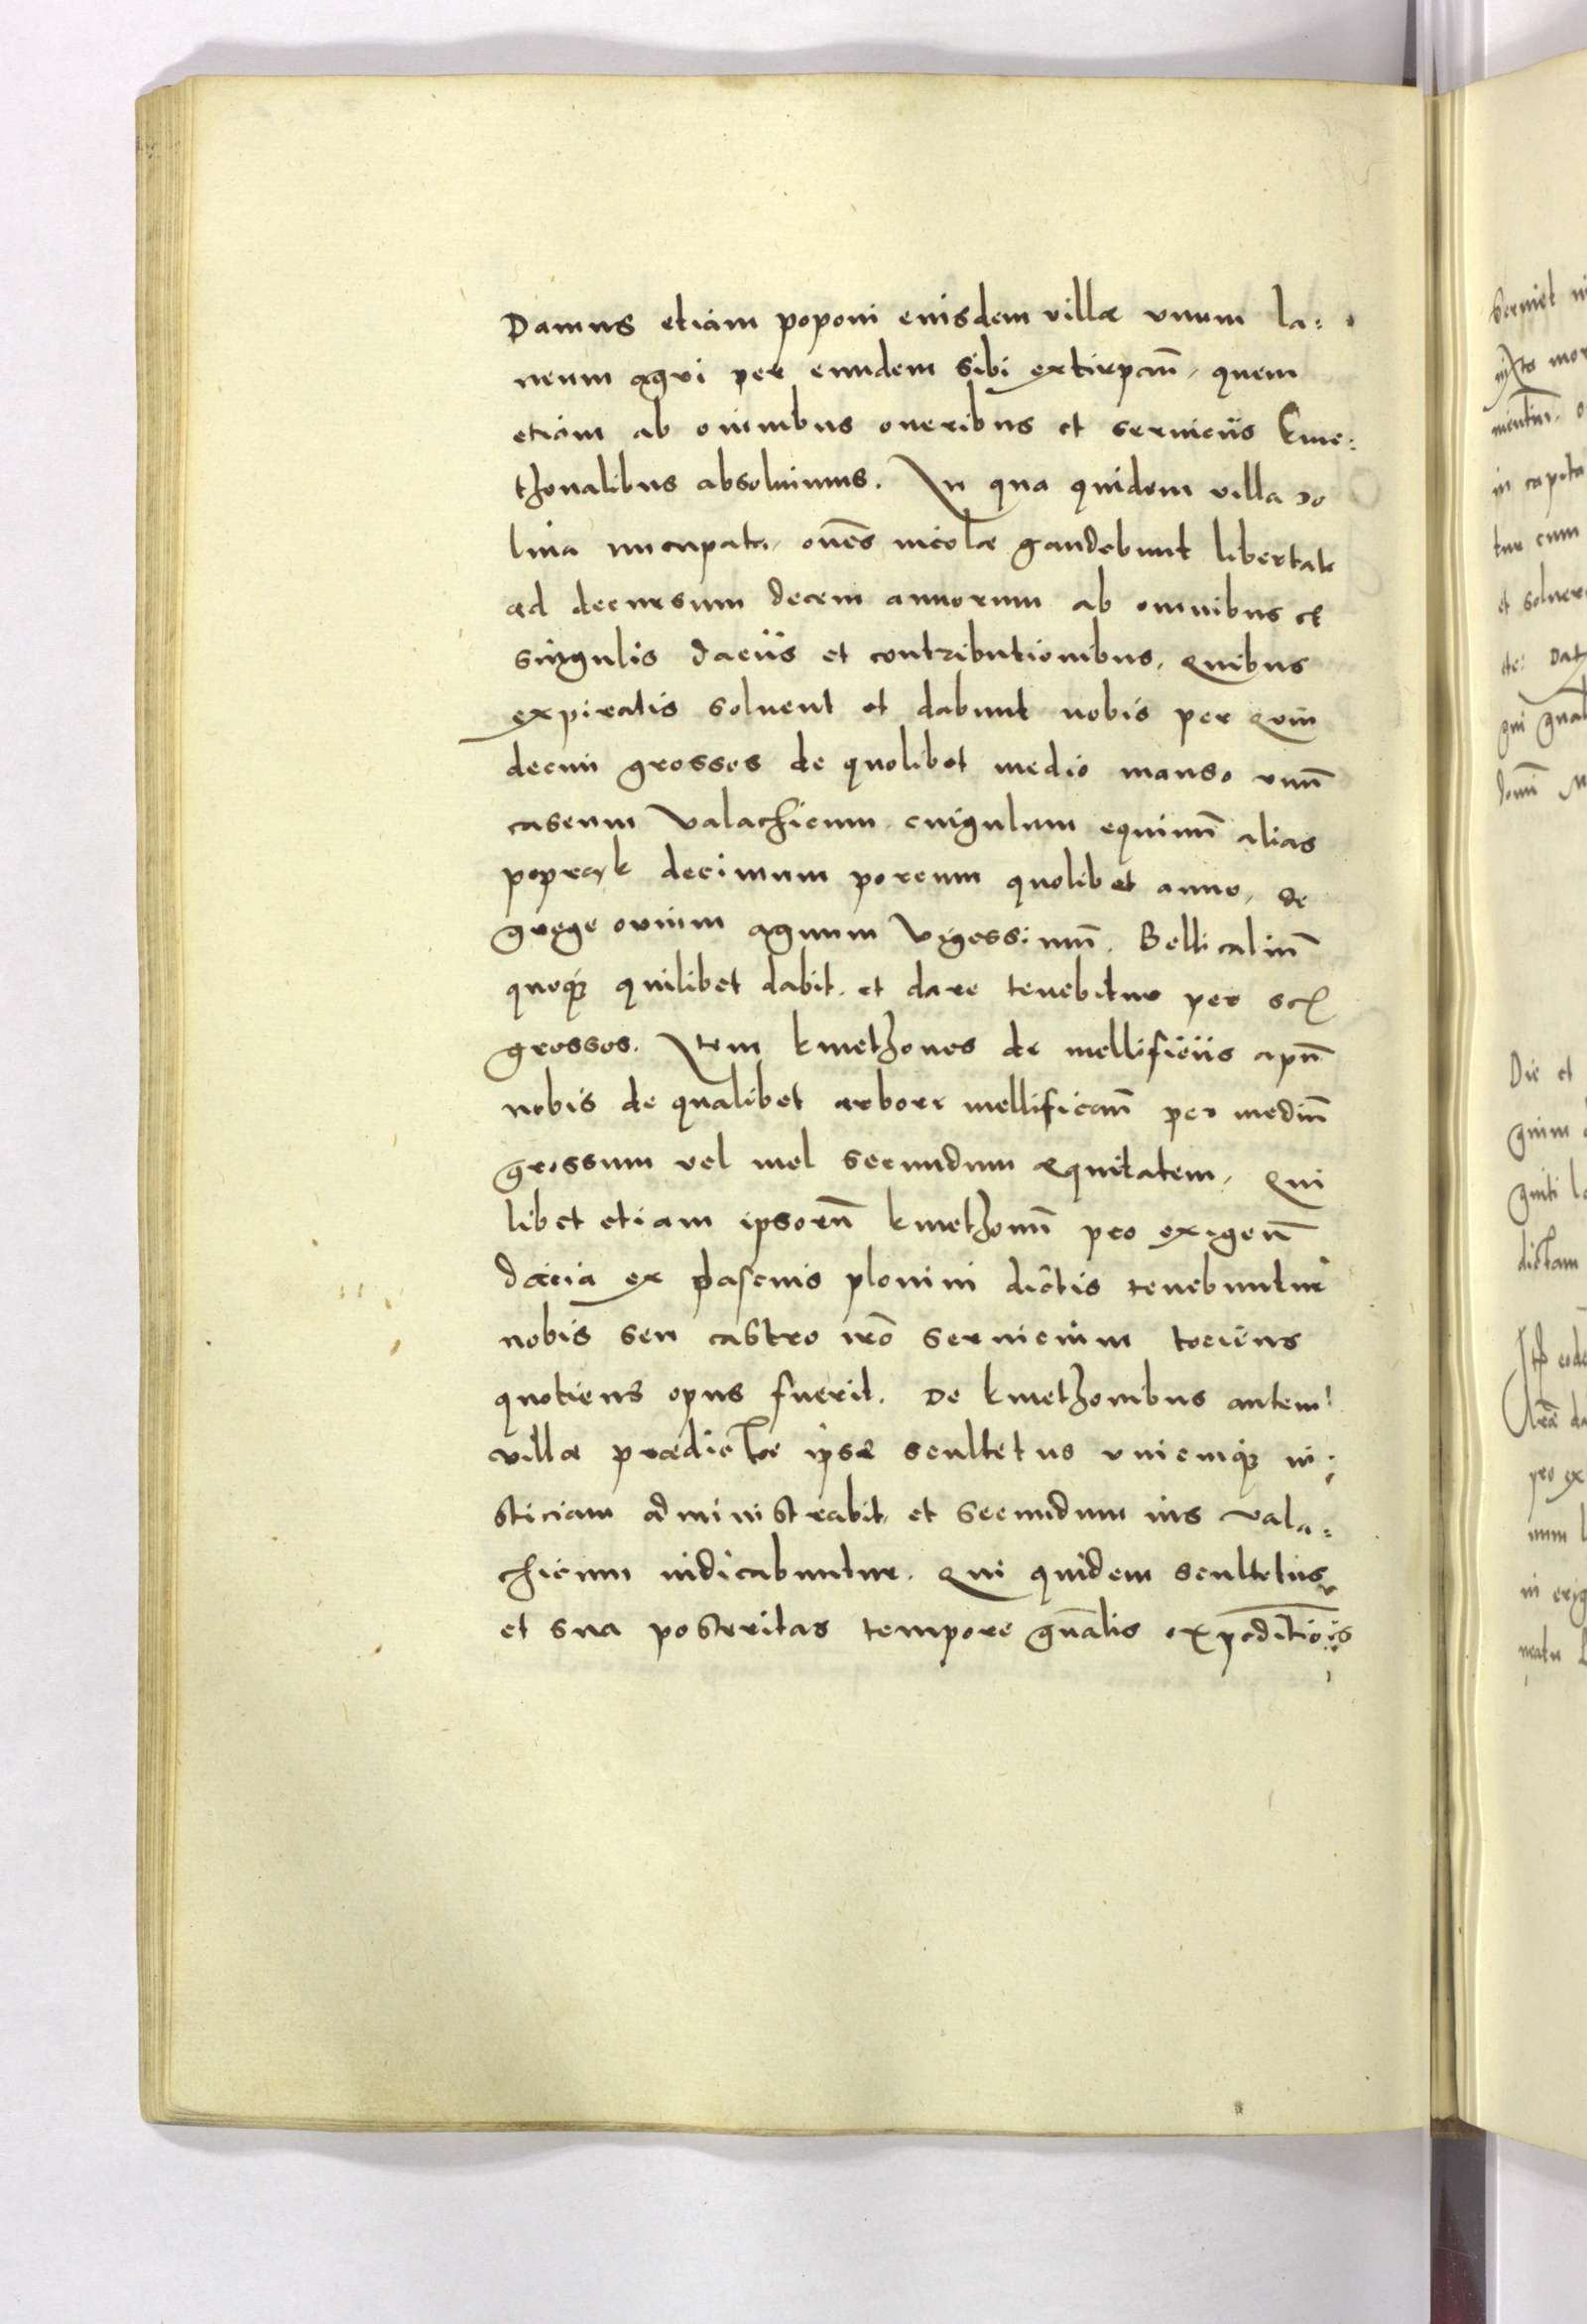 Damus etiam poponi euisdem villæ vnum la:
neum agri per eundem sibi extirpan̄, quem
etiam ab omnibus oneribus et seruicijs kme:
thonalibus absoluimus. In qua quidem villa do
lina nucupata, om̄es incolæ gaudebunt libertate
ad decursum decem annorum ab omnibus et
singulis dacijs et contributionibus, quibus
expiratis soluent et dabunt nobis per quin
decim grossos de quolibet medio manso vnū
caseum valachicum cingulum equinū alias
poprąk decimum porcum quolibet anno, de
grege ouium agnum vigessimū. Bellicalium̄
quoqꝫ quilibet dabit et dare tenebitur per sex
grossos. Item kmethones de mellificijs apū
nobis de qualibet arbore mellifican̄ per mediū
grossum vel mel secundum æquitatem, Qui
libet etiam ipsorū kmethonū pro exigen̄
dacia ex pascuis plonini dictis tenebuntur
nobis seu castro nrō seruicium tociens
quotiens opus fuerit. De kmethonibus autem
villæ prædictæ ipse scultetus vnicuiqꝫ iu:
sticiam administrabit et secundum ius vala:
chicum iudicabuntur. Qui quidem scultetus
et sua posteritas tempore gn̄alis expeditiōis